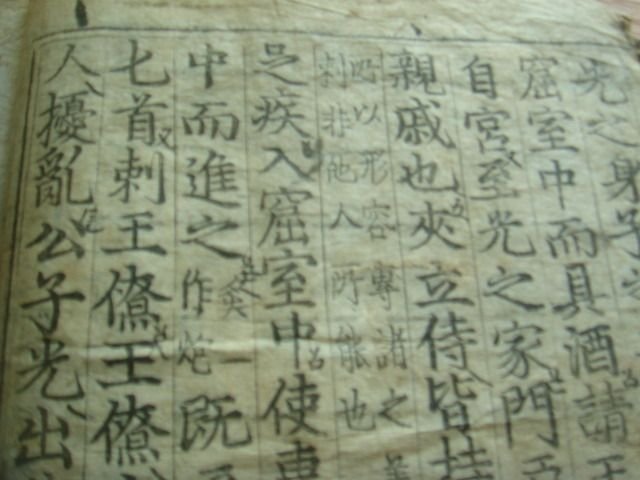 光之身子
窟室中而具酒請王
自宮至光之家門
親戚也夾立侍皆持
所以形容專諸之
刺非他人所能也
足疾入窟室中使專
中而進之
作炮
既
匕首刺王僚王僚
人擾亂公子光出